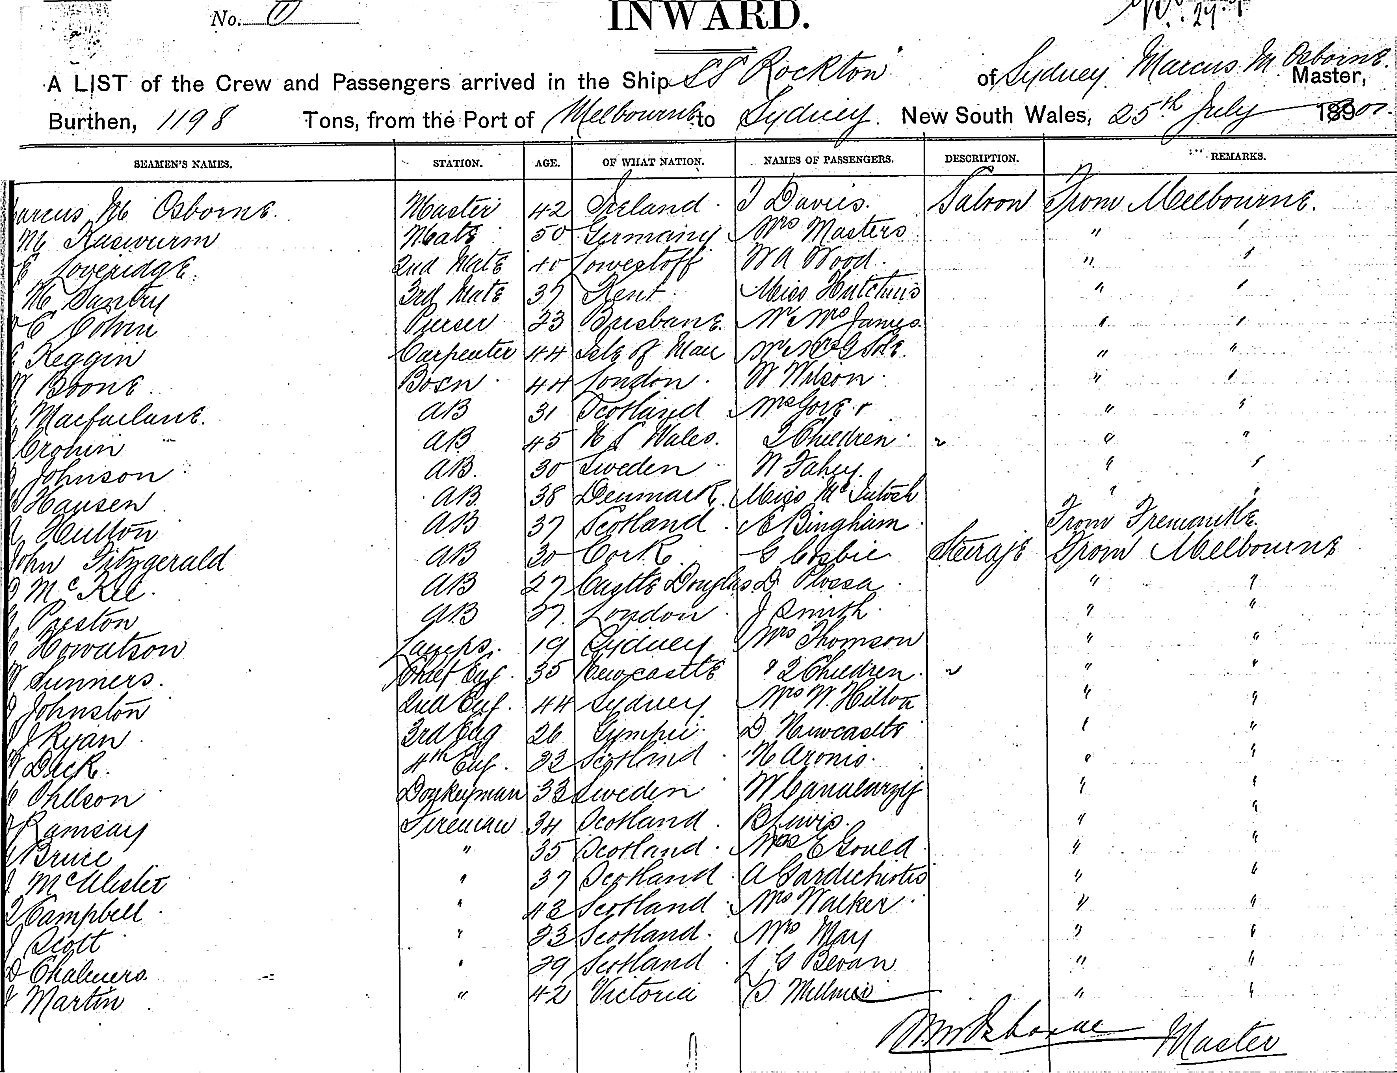 No. 0
INWARD.
A LIST of the Crew and Passengers arrived in the Ship SS "Rockton" of Sydney Marcus M. Osborne Master,
Burthen, 1198 Tons, from the Port of Melbourne to Sydney. New South Wales, 25th July 1901.
SEAMEN'S NAMES. STATION. AGE. OF WHAT NATION. NAMES OF PASSENGERS. DESCRIPTION. REMARKS.
arcus M Osborne. Master 42 Ireland. T Davies. Saloon From Melbourne.
M Kaswurm Mate 50 Germany Mrs Masters " "
E Loveridge. 2nd Mate 40 Lowestoff W A Wood. " "
M Santry 3rd Mate 37 Kent Miss Hutchins " "
C Colvin Purser 23 Brisbane. Mr Mrs James. " "
Keggin Carpenter 44 Isle of Man " "
W Boone. Bosn. 44 London. W Wilson. " "
Macfarlane. AB 31 Scotland Mrs Gore & " "
Cronin AB 45 N S Wales. 2 Children. " " "
Johnson AB. 30 Sweden W Fahey. " "
Hansen AB. 38 Denmark. Miss McIntosh " "
Hutton AB 37 Scotland. E Bingham. From Fremantle.
John Fitzgerald AB 30 Cork. G Cosbie Steerage From Melbourne
McKee. AB 27 Castle Douglas D. Plossa " "
Preston AB 27. London J Smith. " "
Howatson Lamps. 19 Sydney Mrs Thomson " "
W Sunners. Chief Eng. 35 Newcastle " 2 Children. " " "
Johnston 2nd Eng. 44 Sydney Mrs W. Hilton " "
J Ryan 3rd Eng 26 Gympie. D Newcastle " "
W Dick. 4th Eng. 23 Scotland N Aronis. " "
Ohlson Donkeyman 33 Sweden W " "
Ramsay Fireman 34 Scotland. B Lewis. " "
Bruce " 35 Scotland. Mrs E Gould. " "
J McAlister " 37 Scotland. A " "
Campbell. " 43 Scotland. Mrs Walker. " "
J Scott " 23 Scotland. Mrs May " "
D Chalmers. " 29 Scotland. L G Bevan " "
Martin " 42 Victoria " "
M M Osborne Master